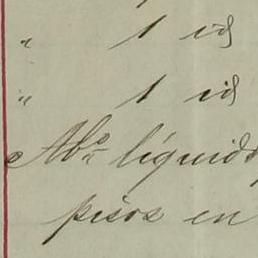 " 1 id
" 1 id
Abº líquido
pisos en